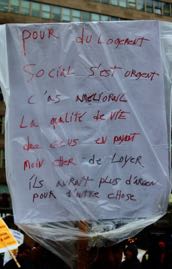 POUR DU LOGEMENT
SOCIAL S'EST URGENT
C'AS AMELIORNE
LA QALITÉ DE VIE
DEC CEUS EN PAYENT
MOIN CHER DE LOYER
ILS AURAYT PLUS D'ARGEN
POUR D'AUTRE CHOSE